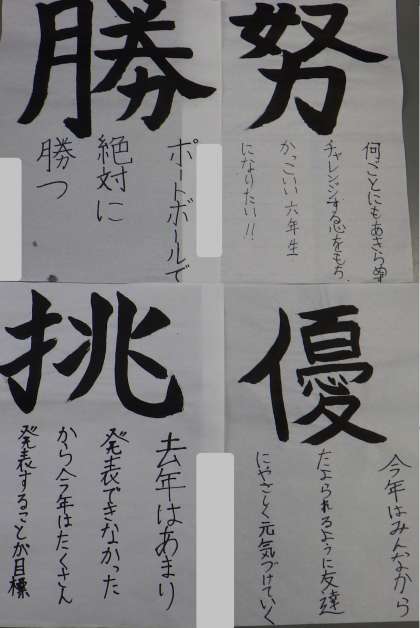 努
何ごとにもあきらめず
チャレンジする心をもち、
かっこいい六年生
になりたい!!
勝
ポートボールで
絶対に
勝つ
優
今年はみんなから
たよられるように友達
にやさしく元気づけていく
挑
去年はあまり
発表できなかった
から今年はたくさん
発表することが目標